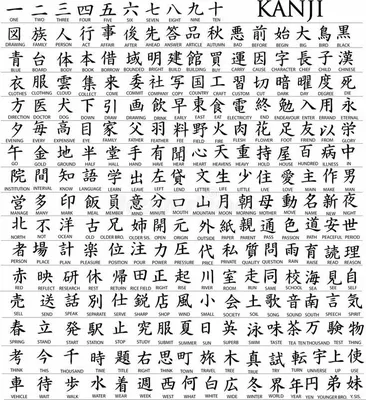 一 二 三 四 五 六 七 八 九 十 KANJI
ONE TWO THREE FOUR FIVE SIX SEVEN EIGHT NINE TEN
図 族 人 行 事 後 先 答 品 秋 悪 前 始 大 鳥 黒
DRAWING FAMILY PERSON ACT AFFAIR AFTER AHEAD ANSWER ARTICLE AUTUMN BAD BEFORE BEGIN BIG BIRD BLACK
青 台 体 本 借 域 明 建 館 買 運 因 字 長 子 漢
BLUE BOARD BODY BOOK BORROW BRIGHT BUILD BUILDING BUY CARRY CAUSE CHARACTER CHIEF CHILD CHINESE
衣 服 雲 集 来 委 社 写 国 工 習 切 暗 曜 度 死
CLOTHES CLOTHING CLOUD COLLECT COME COMMIT COMPANY COPY COUNTRY CRAFT CUT DARK
方 医 犬 下 引 画 飲 早 東 食 電 終 勉 入 用 永
DIRECTION DOCTOR DOG DOWN DRAW DRAWING DRINK EARLY EAST EAT ELECTRICITY END ENDEAVOUR ENTER ERRAND ETERNAL
夕 毎 高 目 家 父 羽 料 野 火 肉 花 足 友 以
EVENING EVERY EXPENSIVE EYE FAMILY FATHER FEATHER FEE FIELD FIRE FLESH FLOWER FOOT FRIEND FROM
金 地 半 堂 手 有 聞 心 天 重 持 屋 百 病 中
GO GOLD GROUND HALF HALL HAND HAVE HEAR HEART HEAVENS HEAVY HOLD HOUSE HUNDRED ILLNESS IN
院 間 知 語 学 出 左 文 生 少 住 愛 主 作 男
INSTITUTION INTERVAL KNOW LANGUAGE LEARN LEAVE LEFT LEND LETTER LIFE LITTLE LIVE LOVE MAIN MAKE MAN
営 多 印 飯 員 意 分 口 山 月 朝 母 動 名 新 夜
MANAGE MANY MARK MEAL MEMBER MIND MINUTE MOUTH MOUNTAIN MOON MORNING MOTHER MOVE NAME NEW NIGHT
北 不 洋 古 姉 開 元 外 紙 親 通 色 道 安 世
NORTH NOT OCEAN OLD OLDER BRO. OLDER SIS. OPEN ORIGIN OUTSIDE PAPER PARENT PASS PASSION PATH PEACEFUL PERIOD
者 場 計 楽 位 注 圧 代 私 質 問 雨 育 読 理
PERSON PLACE PLAN PLEASURE POSITION POUR POWER PRESSURE PRICE PRIVATE QUALITY QUESTION RAIN RAISE READ REASON
赤 映 研 休 帰 田 正 起 川 室 走 同 校 海 見 自
RED REFLECT RESEARCH REST RETURN RICE FIELD RIGHT RISE RIVER ROOM RUN SAME SCHOOL SEA SEE SELF
売 送 話 別 仕 鋭 店 風 小 会 土 歌 音 南 言 気
SELL SEND SPEAK SEPARATE SERVE SHARP SHOP WIND SMALL SOCIETY SOIL SONG SOUND SOUTH SPEECH SPIRIT
春 立 発 駅 止 究 服 夏 日 英 泳 味 茶 万 験 物
SPRING STAND START STATION STOP STUDY SUBMIT SUMMER SUN SUPERB SWIM TASTE TEA TEN THOUSAND TEST THING
考 今 千 時 題 右 思 町 旅 木 真 試 転 宇 上 使
THINK THIS THOUSAND TIME TITLE RIGHT THINK TOWN TRAVEL TREE TRUE TRY TURN UNIVERSE UP USE
車 待 歩 水 着 週 西 何 白 広 冬 界 年 円 弟 妹
VEHICLE WAIT WALK WATER WEAR WEEK WEST WHAT WHITE WIDE WINTER WORLD YEAR YEN YOUNGER BRO. Y. SIS.